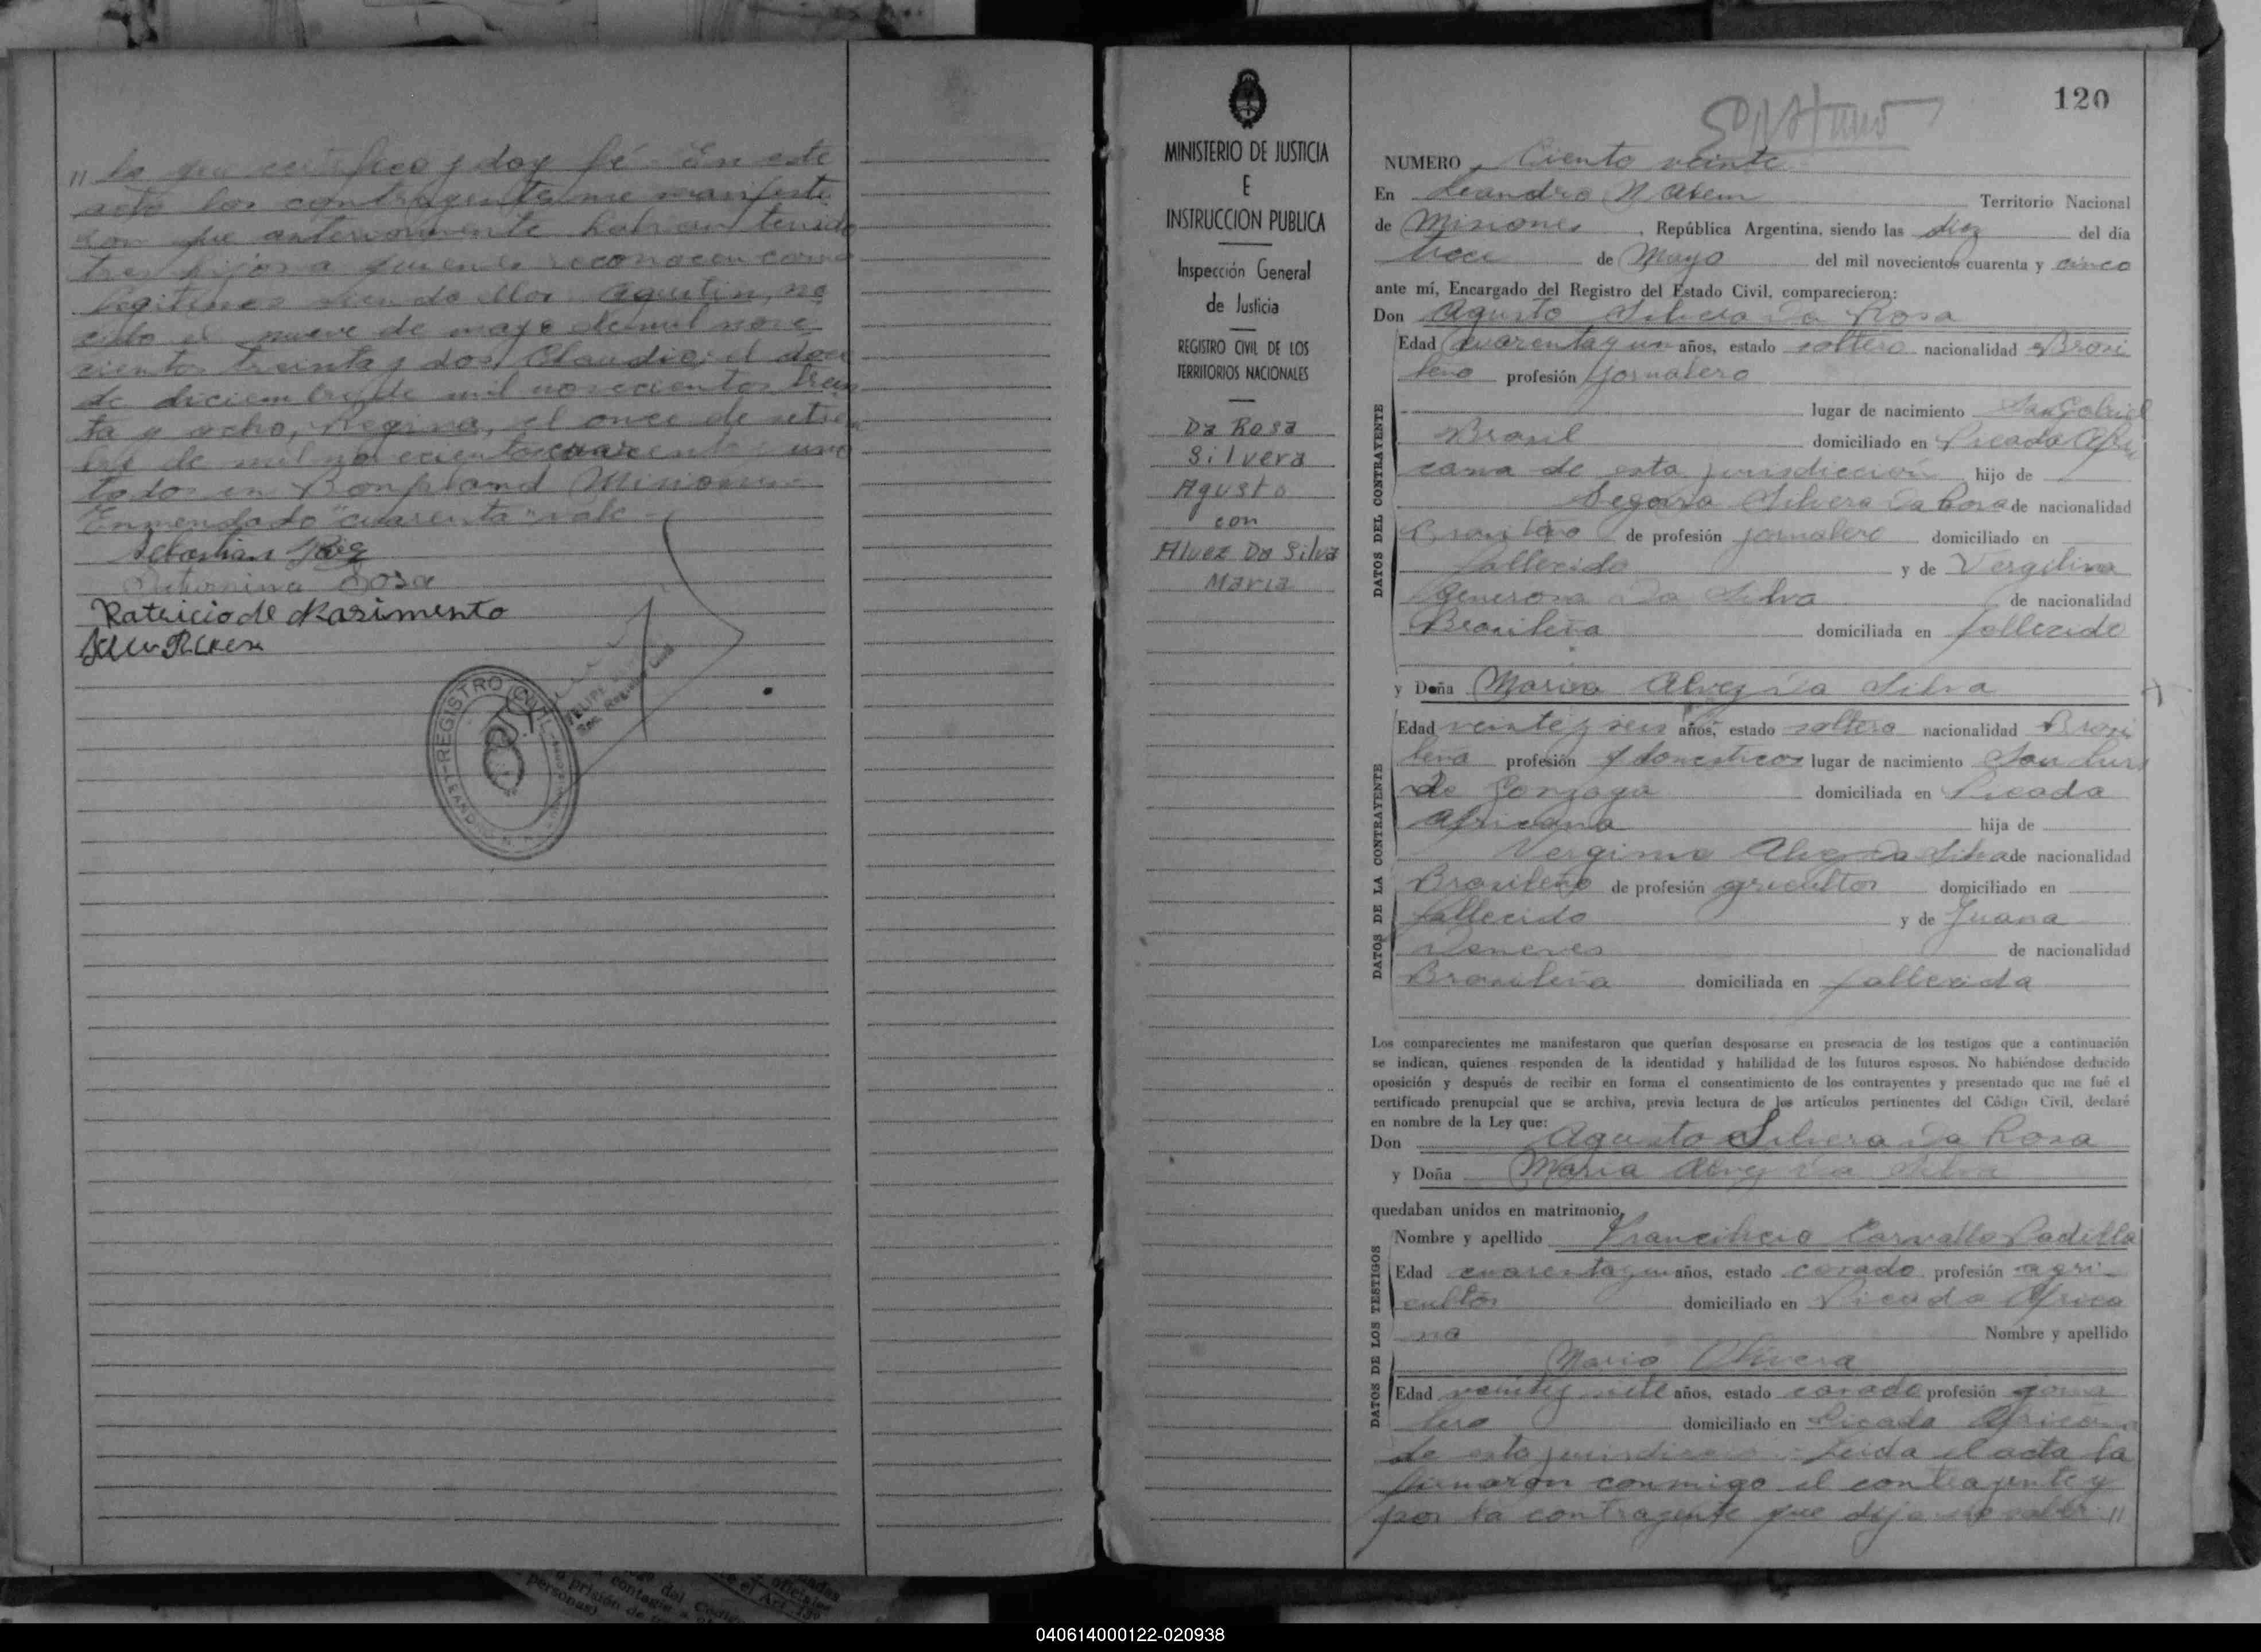 " la que certifico y doy fé. En este
acto los contrayentes me manifesta
ron que anteriormente habian tenido
tres hijos a quienes reconocen como
legitimos siendo ellos: Agustin, na
cido el nueve de mayo de mil nove
cientos treinta y dos, Claudio; el doce
de diciembre de mil novecientos trein
ta y ocho, Regina, el once de setiem
bre de mil novecientos cuarenta y uno
todos en Bonpland Misiones
Enmendado "cuarenta" vale
Sebastian
Rosa
Patricio de Nasimento
REGISTRO CIVIL
MINISTERIO DE JUSTICIA
E
INSTRUCCION PUBLICA
Inspección General
de Justicia
REGISTRO CIVIL DE LOS
TERRITORIOS NACIONALES
Da Rosa
Silvera
Agusto
con
Alvez Da Silva
Maria
120
NUMERO Ciento veinte
En Leandro N Alem Territorio Nacional
de Misiones, República Argentina, siendo las diez del día
trece de Mayo del mil novecientos cuarenta y cinco
ante mí, Encargado del Registro del Estado Civil, comparecieron:
Don Agusto Silvera Da Rosa
DATOS DEL CONTRAYENTE
Edad cuarenta y un años, estado soltero nacionalidad Brasi
leno profesión jornalero
lugar de nacimiento San Gabriel
Brasil domiciliado en Picada Afri
cana de esta jurisdicción hijo de
Silvera Da Rosa de nacionalidad
Brasileño de profesión jornalero domiciliado en
fallecido y de Vergilina
Generosa Da Silva de nacionalidad
Brasileña domiciliada en fallecido
y Doña Maria Alvez Da Silva
DATOS DE LA CONTRAYENTE
Edad veinte y seis años, estado soltera nacionalidad Brasi
lena profesión q domesticos lugar de nacimiento San Luis
de Gonzaga domiciliada en Picada
Africana hija de
Alvez Da Silva de nacionalidad
Brasileño de profesión agricultor domiciliado en
fallecido y de Juana
de nacionalidad
Brasileña domiciliada en fallecida
Los comparecientes me manifestaron que querían desposarse en presencia de los testigos que a continuación
se indican, quienes responden de la identidad y habilidad de los futuros esposos. No habiéndose deducido
oposición y después de recibir en forma el consentimiento de los contrayentes y presentado que me fué el
certificado prenupcial que se archiva, previa lectura de los artículos pertinentes del Código Civil, declaré
en nombre de la Ley que:
Don Agusto Silvera Da Rosa
y Doña Maria Alvez Da Silva
quedaban unidos en matrimonio.
DATOS DE LOS TESTIGOS
Nombre y apellido Carvallo Padilla
Edad cuarenta y un años, estado casado profesión agri
cultor domiciliado en Picada Africa
na Nombre y apellido
Mario Olivera
Edad veinte y siete años, estado casado profesión jorna
lero domiciliado en Picada Africana
de esta jurisdiccion. Leida el acta la
firmaron conmigo el contrayente y
por la contrayente que dijo no saber "
040614000122-020938